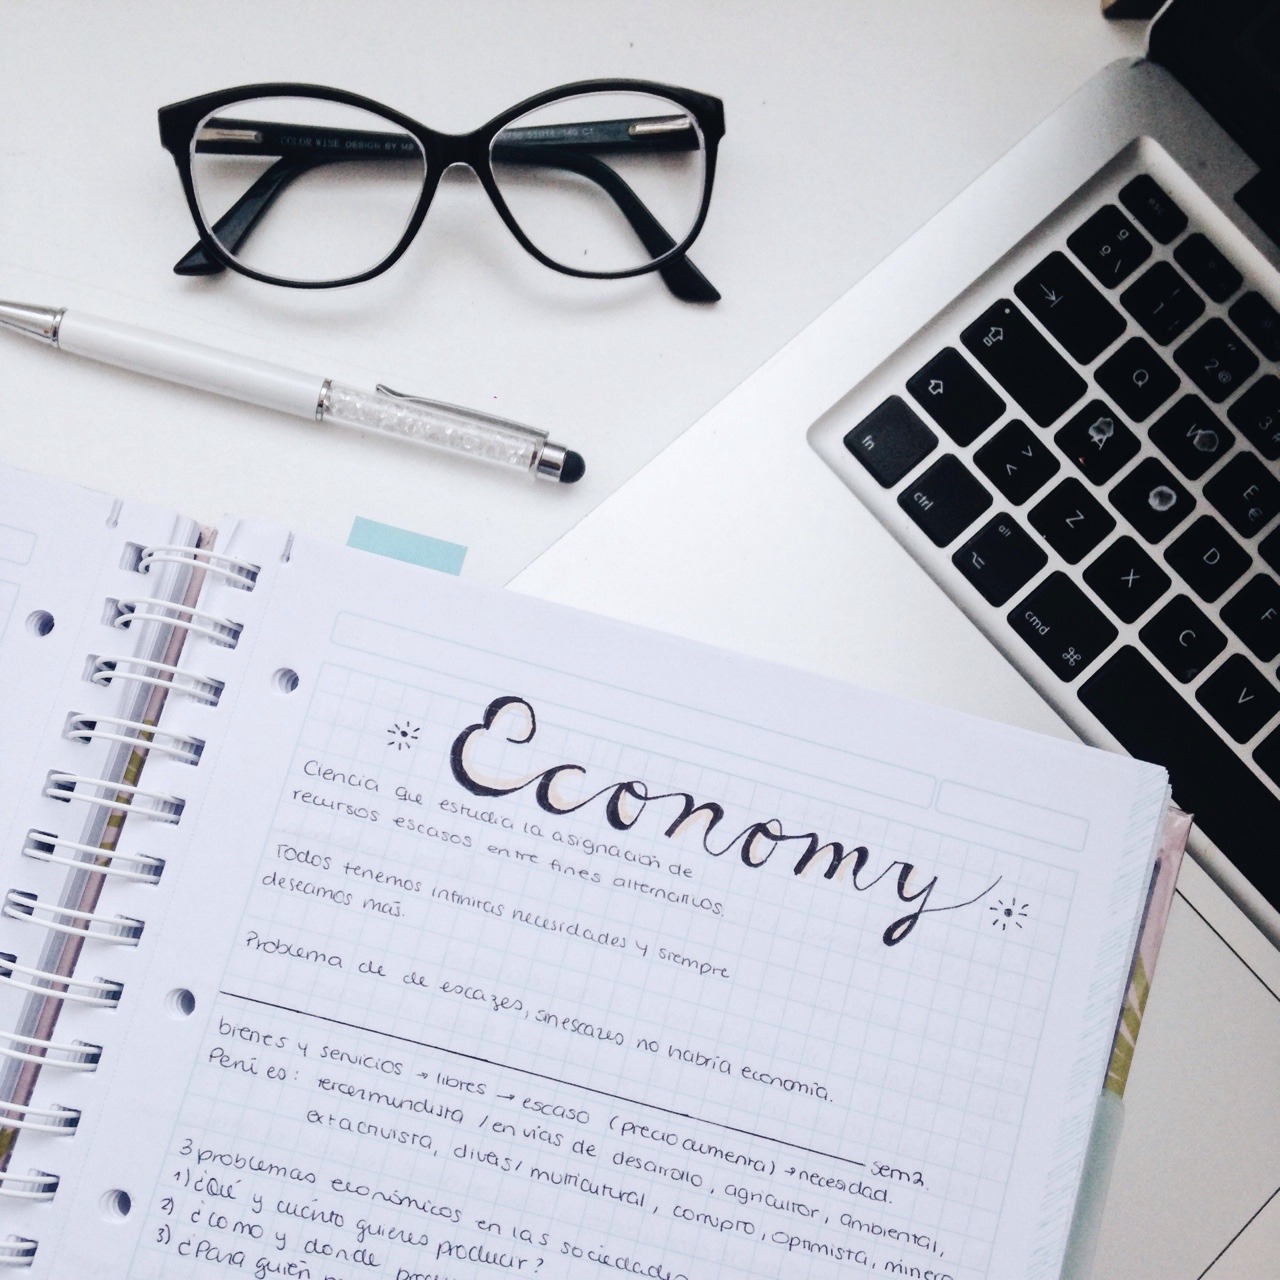 COLOR WISE DESIGN BY MB
esc
1
2 "
@
3
Q
W
E
€
A
S
D
F
fn
ctrl
alt
cmd
⌘
<
>
Z
X
C
V
Economy
Ciencia que estudia la asignación de
recursos escasos entre fines alternativos.
Todos tenemos infinitas necesidades y siempre
deseamos más.
Problema de de escazes, sin escazes no habría economía.
sem2.
bienes y servicios → libres → escaso (precio aumenta) → necesidad.
Perú es: tercermundista / en vías de desarrollo, agricultor, ambiental,
extractivista, divers/ multicultural, corrupto, optimista, minero
3 problemas económicos en las sociedades
1) ¿Qué y cuánto quieres producir?
2) ¿Como y donde
3) ¿Para quién